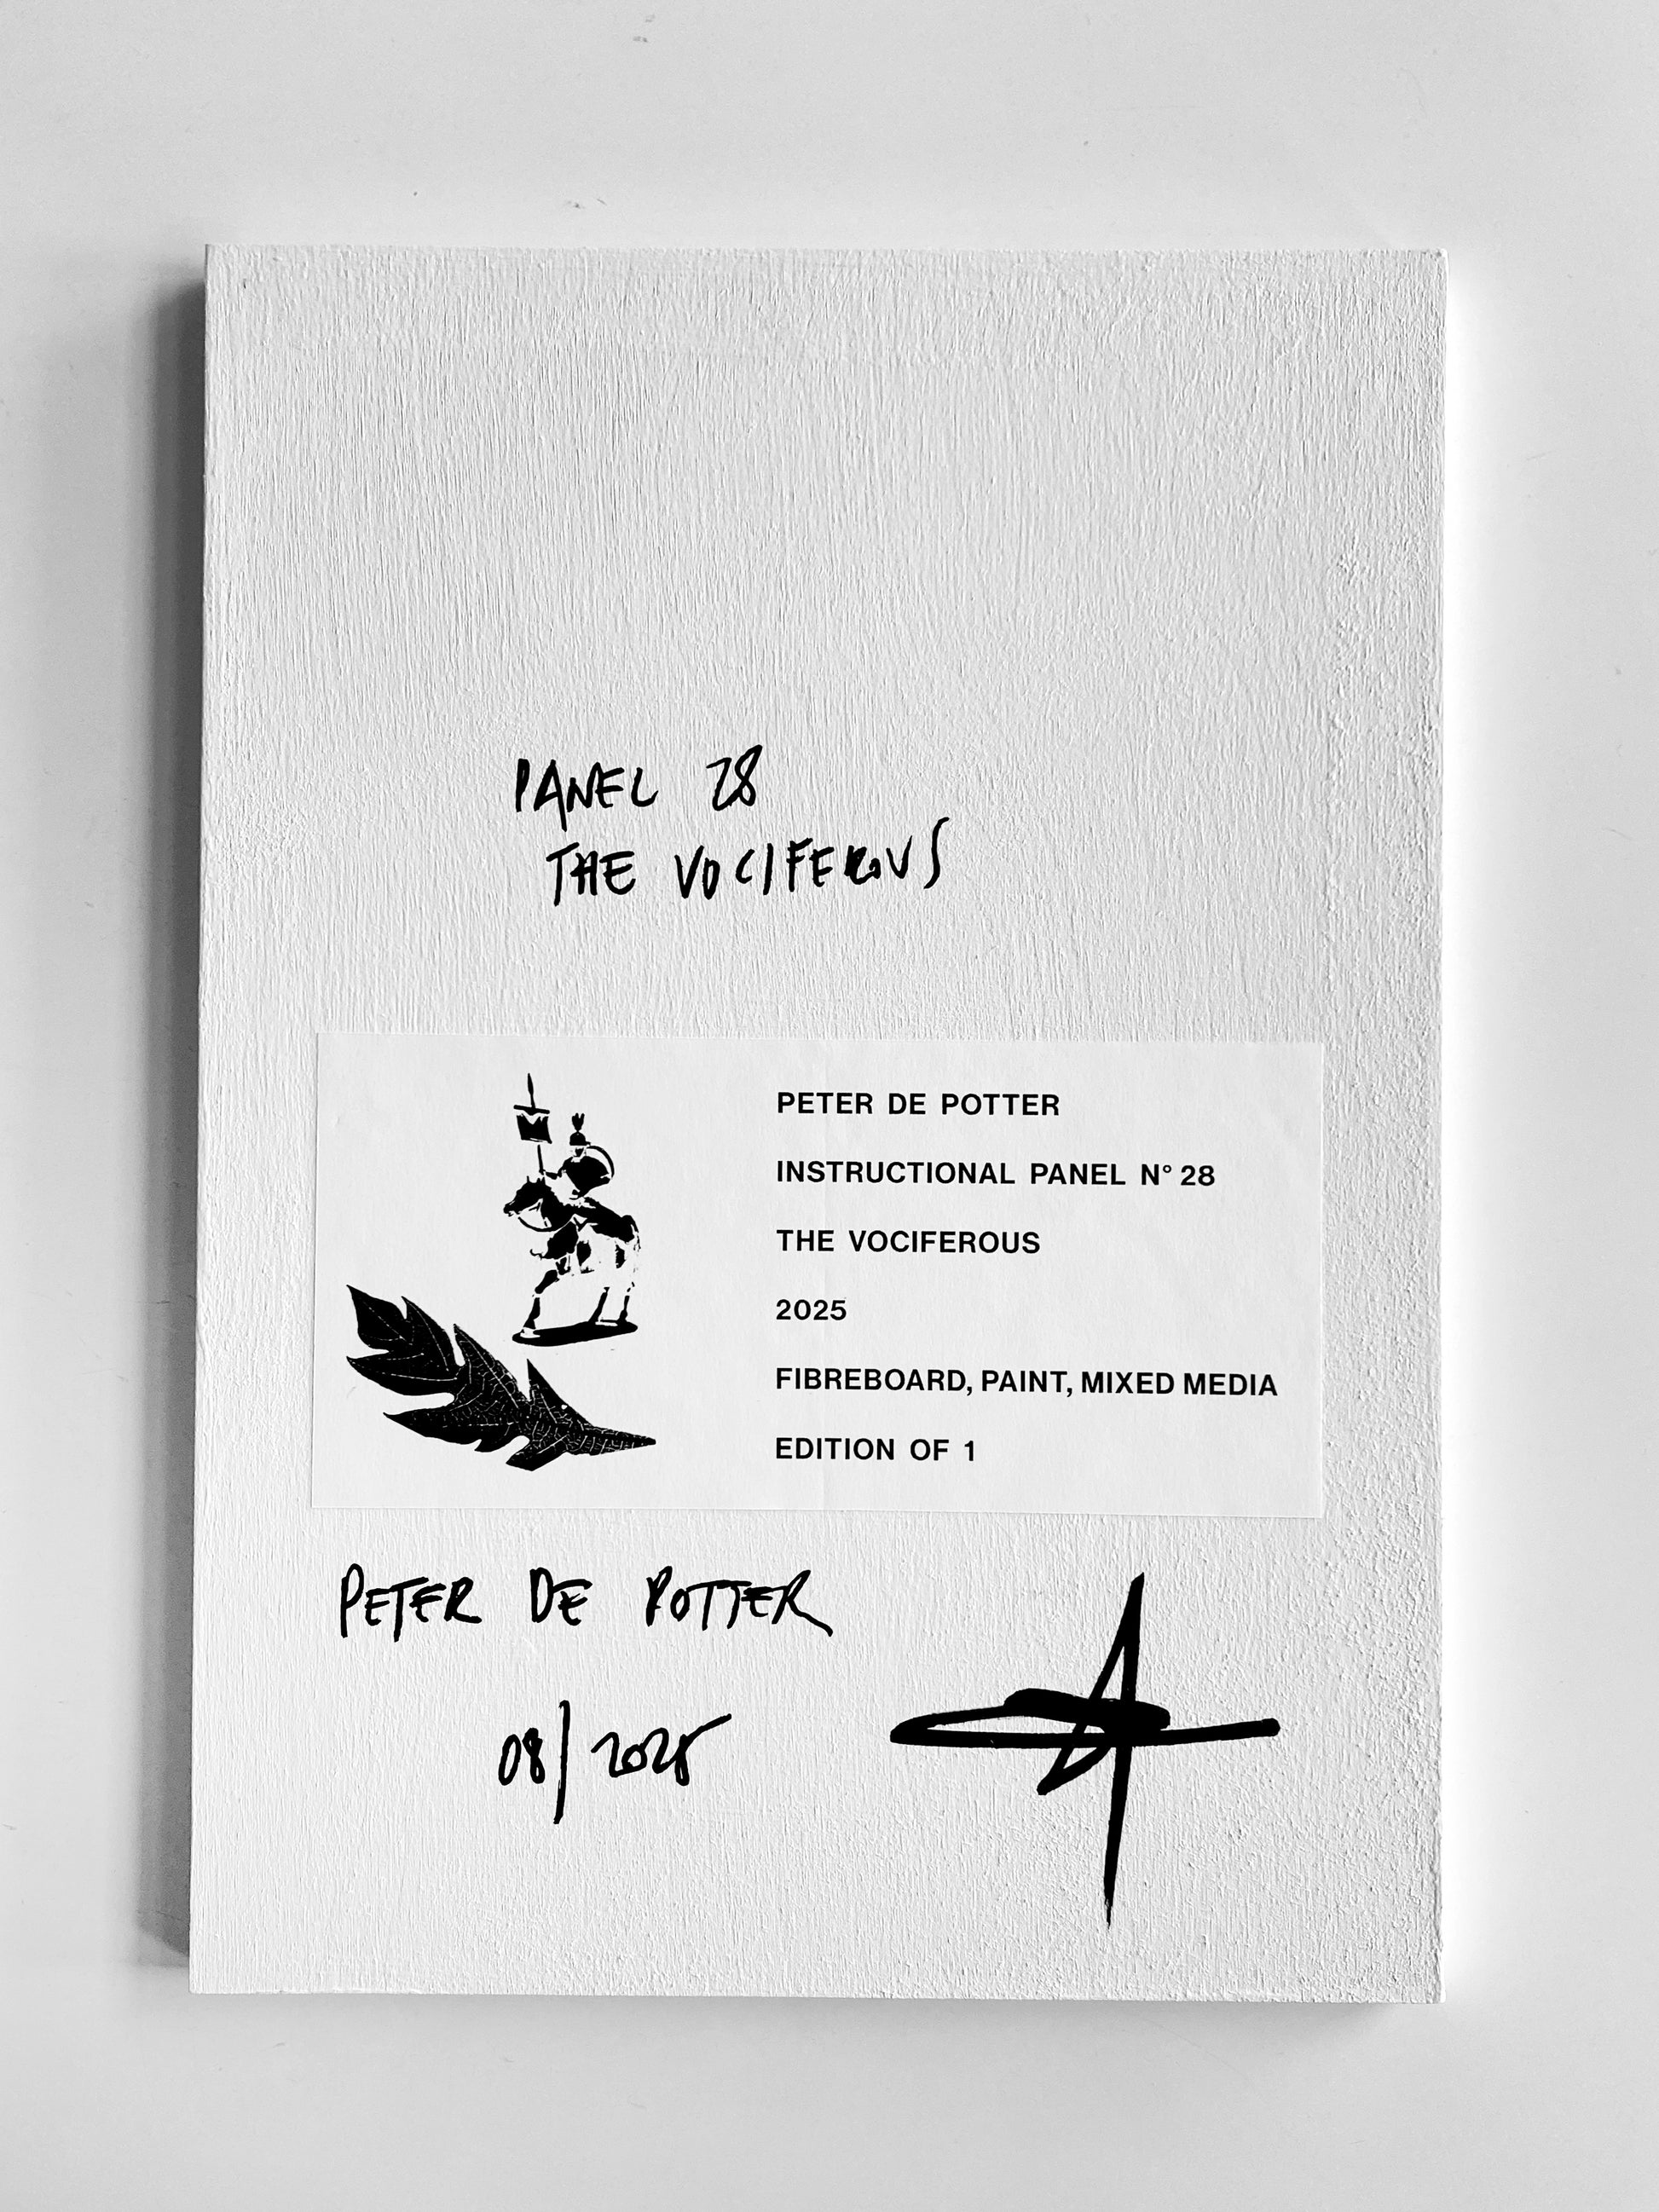 PANEL 28
THE VOCIFEROUS
PETER DE POTTER
INSTRUCTIONAL PANEL N° 28
THE VOCIFEROUS
2025
FIBREBOARD, PAINT, MIXED MEDIA
EDITION OF 1
PETER DE POTTER
08/2025